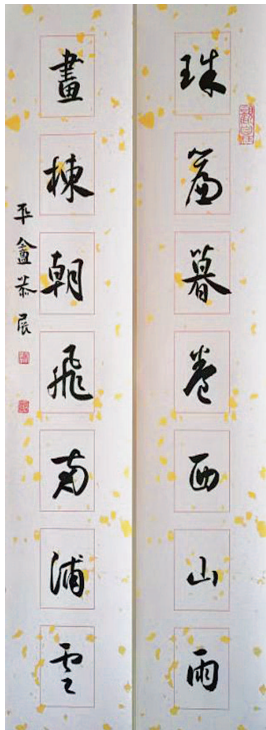 珠簾暮卷西山雨
畫棟朝飛南浦雲
平盦恭展